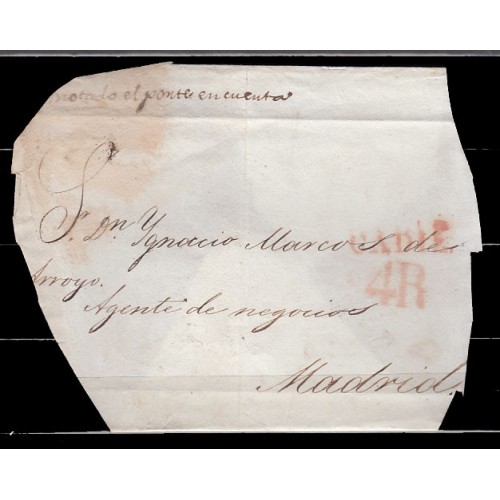 notado el porte en cuenta
Sr. Dn. Ygnacio Marcos de
Arroyo.
Agente de negocios
Madrid.
4R